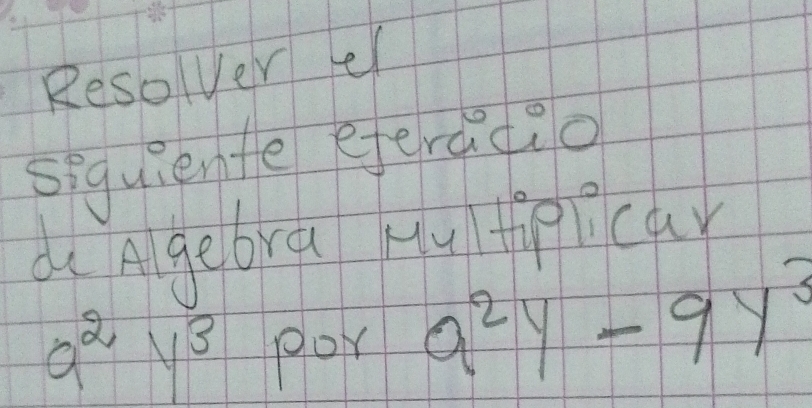 Resolver el
siguiente ejercicio
de Algebra Multiplicar
a² y³ por a²y - 9y³